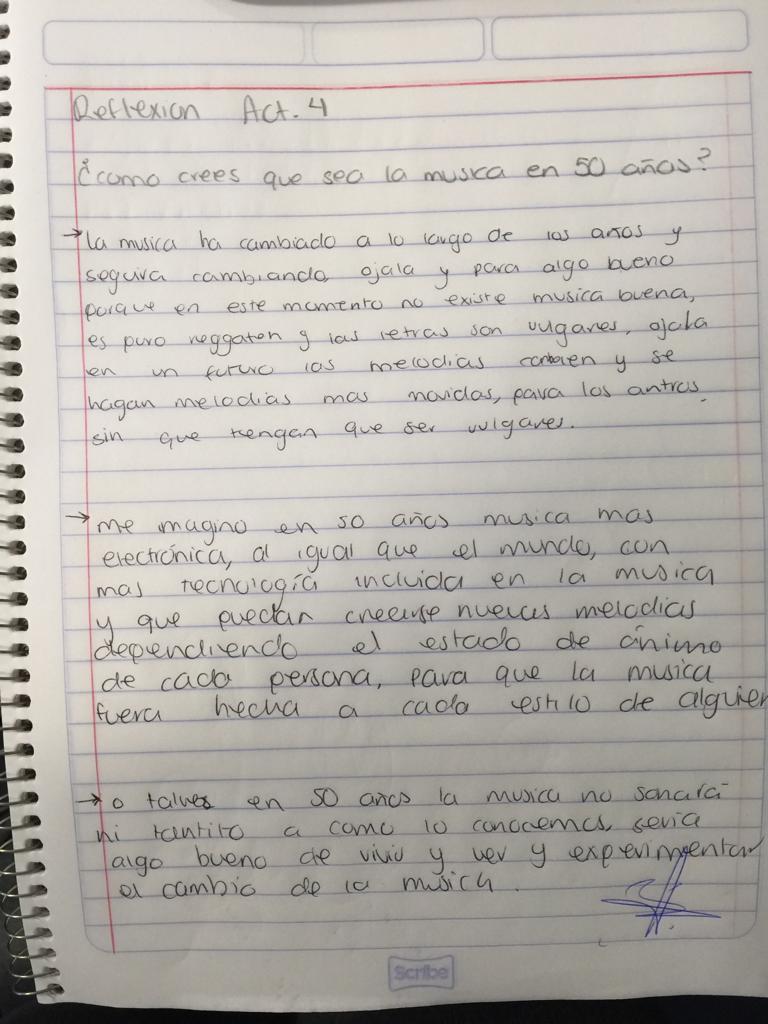 Reflexion Act. 4
¿como crees que sea la musica en 50 años?
→ la musica ha cambiado a lo largo de los años y
seguira cambiando, ojala y para algo bueno
porque en este momento no existe musica buena,
es puro reggaton y las letras son vulgares, ojala
en un futuro las melodias cambien y se
hagan melodias mas movidas, para los antros
sin que tengan que ser vulgares.
→ me imagino en 50 años musica mas
electrónica, al igual que el mundo, con
mas tecnología incluida en la musica
y que puedan creerse nuevas melodias
dependiendo el estado de ánimo
de cada persona, para que la musica
fuera hecha a cada estilo de alguien
→ o talves en 50 años la musica no sonará
ni tantito a como lo conocemos, seria
algo bueno de vivir y ver y experimentar
el cambio de la musica.
Scribe